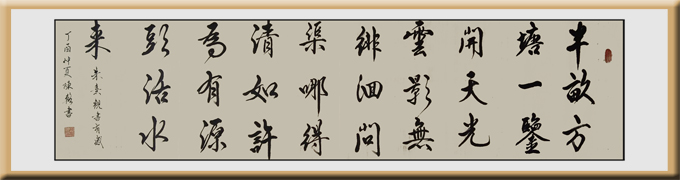 半畝方
塘一鑒
開天光
雲影無
徘徊問
渠哪得
清如許
為有源
頭活水
来
朱熹觀書有感
丁酉仲夏 書